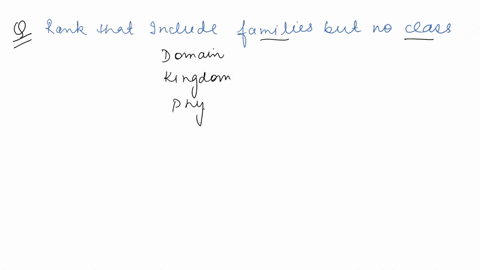 Q Rank that Include families but no class
Domain
Kingdom
Phy